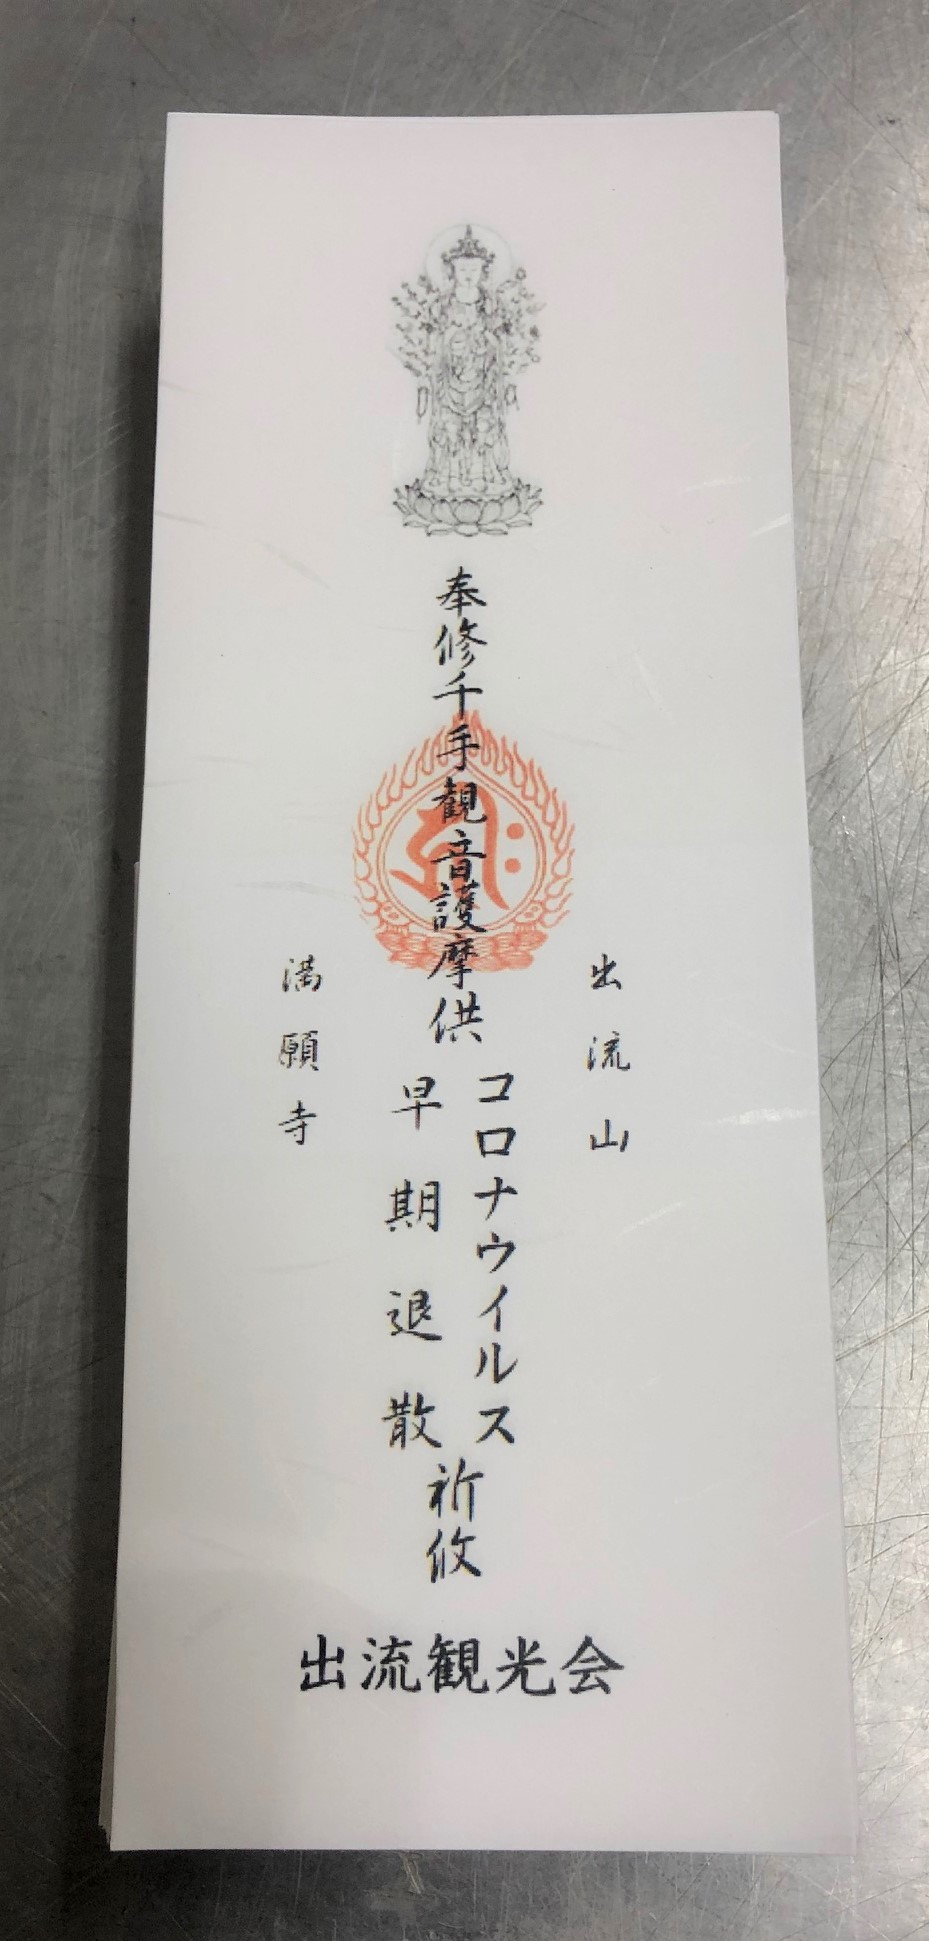 奉修千手観音護摩供
コロナウイルス
早期退散
祈攸
出流山
満願寺
出流観光会